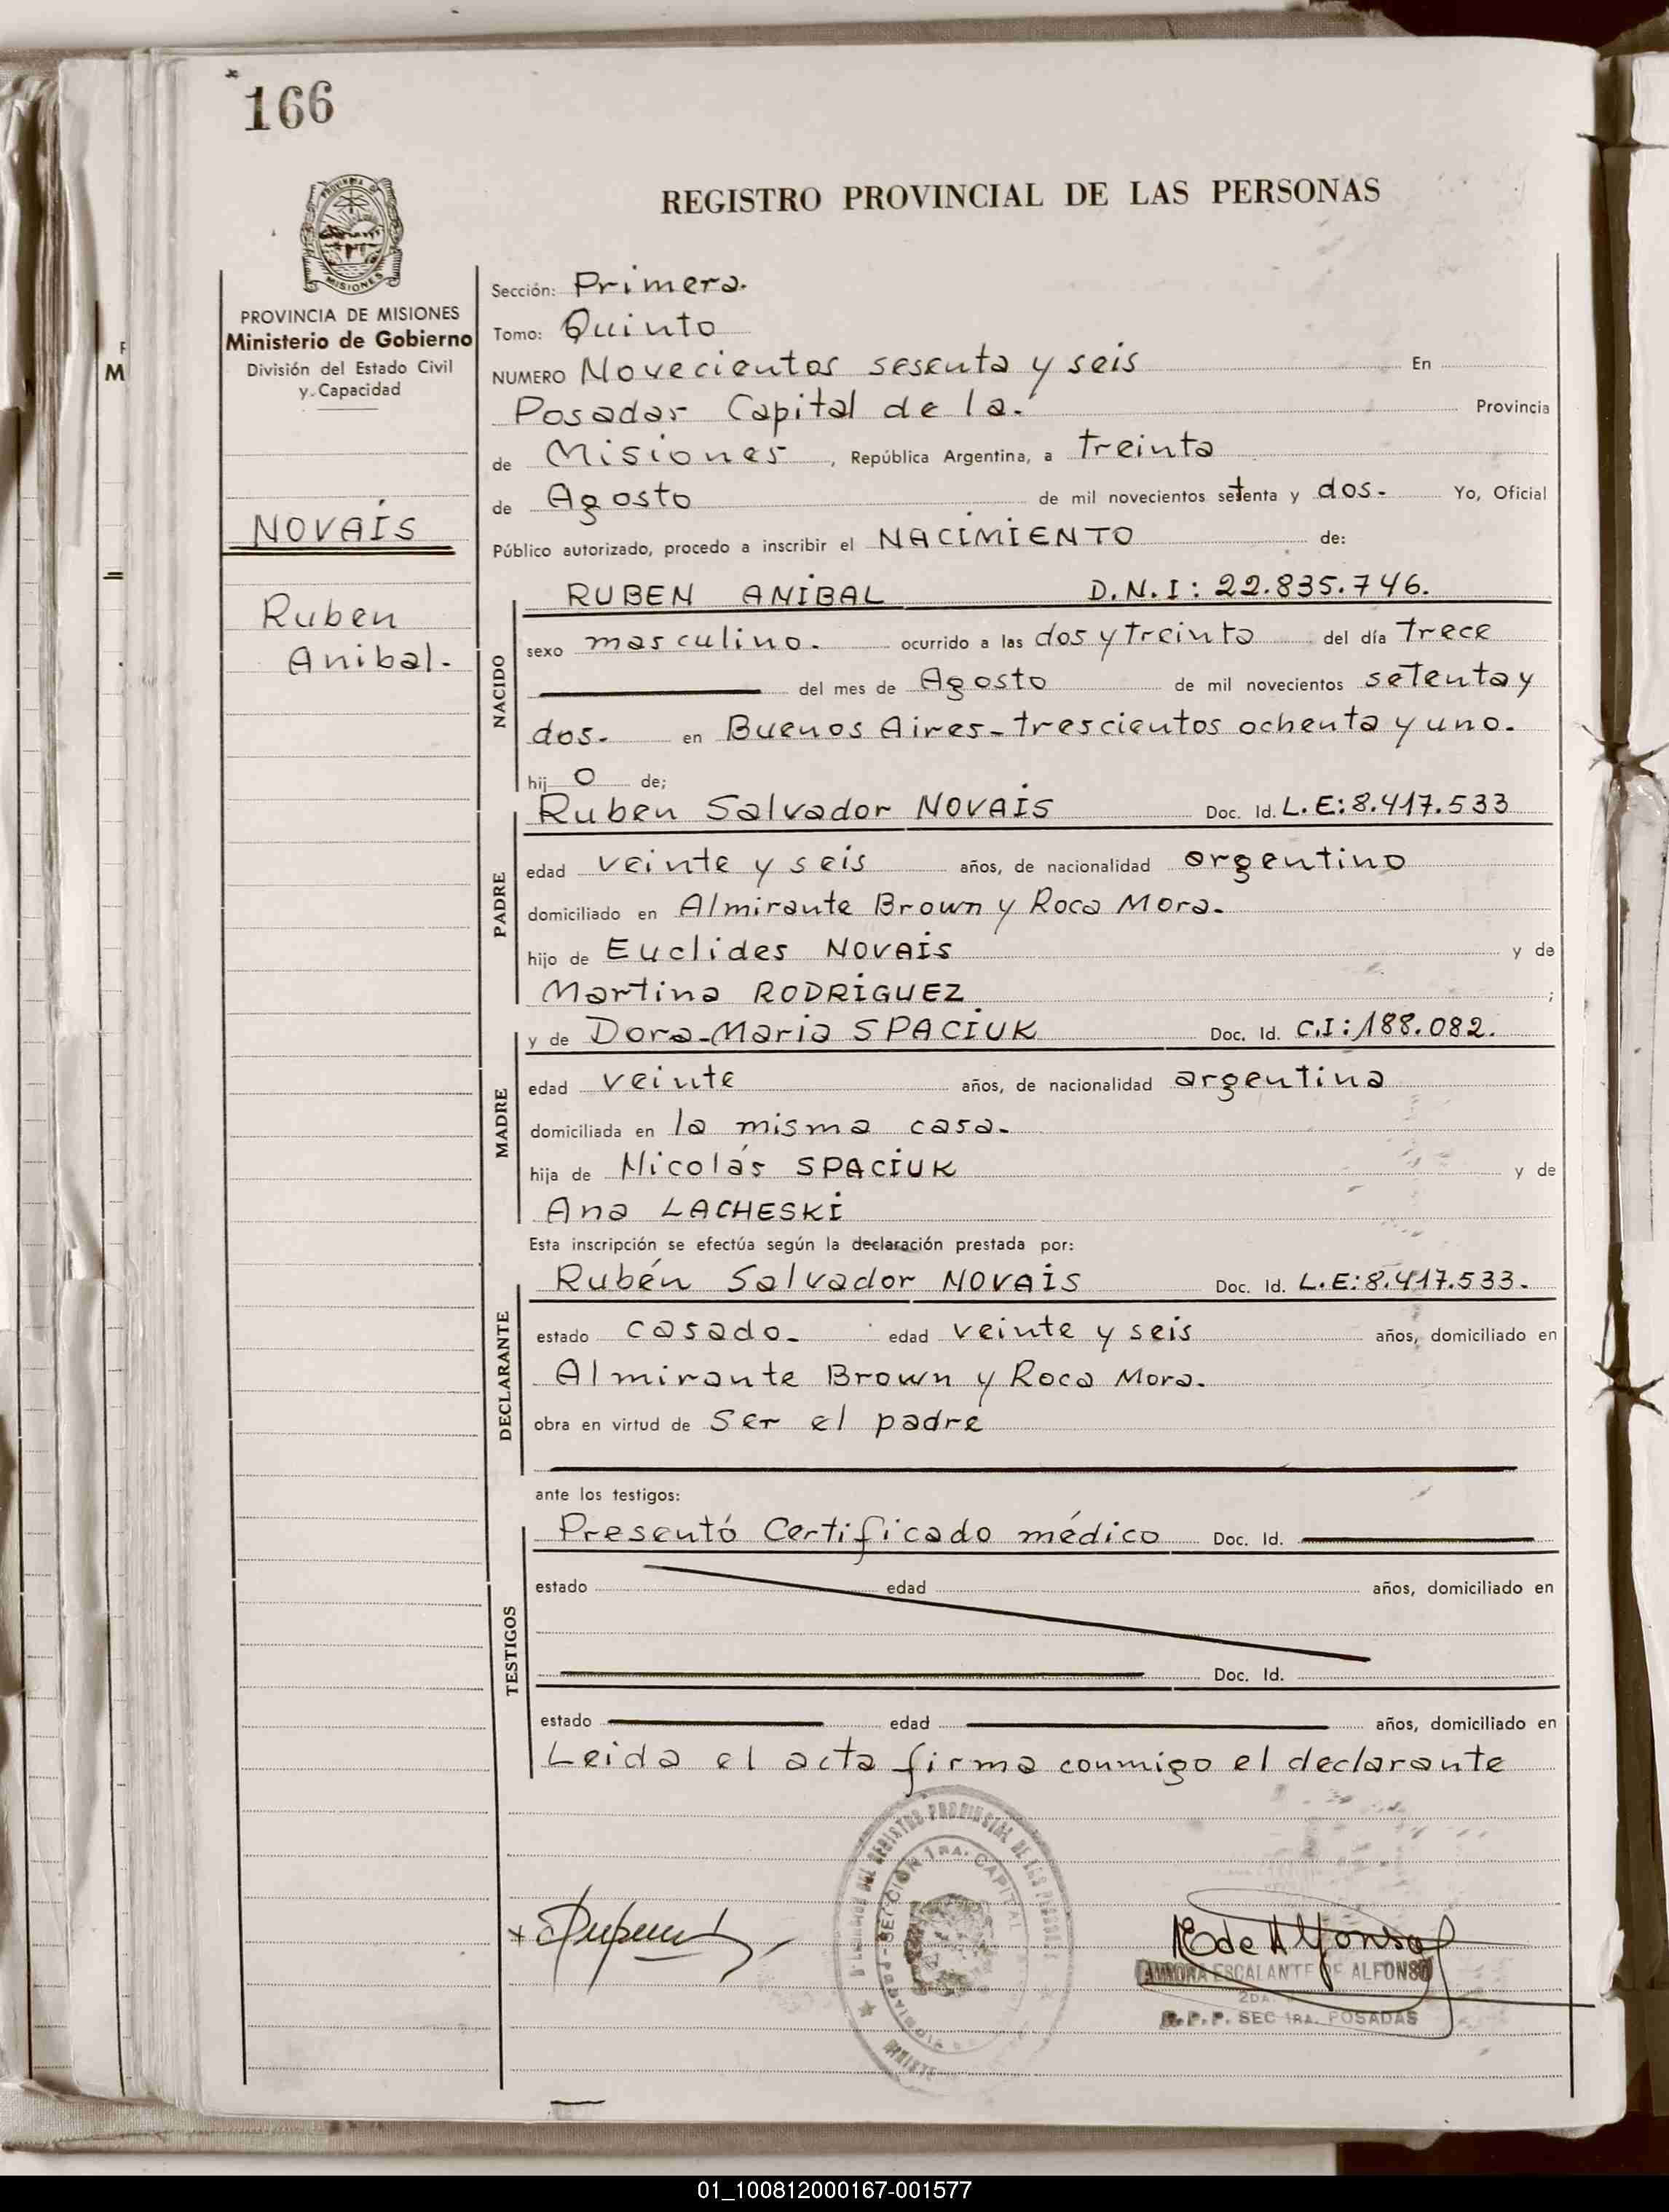 166
REGISTRO PROVINCIAL DE LAS PERSONAS
MISIONES
PROVINCIA DE MISIONES
Ministerio de Gobierno
División del Estado Civil
y Capacidad
NOVAIS
Ruben
Anibal.
Sección: Primera.
Tomo: Quinto
NUMERO Novecientos sesenta y seis En
Posadas Capital de la. Provincia
de Misiones, República Argentina, a treinta
de Agosto de mil novecientos setenta y dos. Yo, Oficial
Público autorizado, procedo a inscribir el NACIMIENTO de:
NACIDO
RUBEN ANIBAL D.N.I: 22.835.746.
sexo masculino. ocurrido a las dos y treinta del día trece
del mes de Agosto de mil novecientos setenta y
dos. en Buenos Aires-trescientos ochenta y uno.
hij o de;
PADRE
Ruben Salvador NOVAIS Doc. Id. L.E:8.417.533
edad veinte y seis años, de nacionalidad argentino
domiciliado en Almirante Brown y Roca Mora.
hijo de Euclides NOVAIS y de
Martina RODRIGUEZ ;
MADRE
y de Dora-Maria SPACIUK Doc. Id. C.I:188.082.
edad veinte años, de nacionalidad argentina
domiciliada en la misma casa.
hija de Nicolás SPACIUK y de
Ana LACHESKI
Esta inscripción se efectúa según la declaración prestada por:
DECLARANTE
Rubén Salvador NOVAIS Doc. Id. L.E:8.417.533.
estado casado. edad veinte y seis años, domiciliado en
Almirante Brown y Roca Mora.
obra en virtud de Ser el padre
ante los testigos:
TESTIGOS
Presentó Certificado médico Doc. Id.
estado edad años, domiciliado en
Doc. Id.
estado edad años, domiciliado en
Leida el acta firma conmigo el declarante
REGISTRO PROVINCIAL DE LAS
SECCION 1RA. CAPITAL
E de Alfonso
AURORA ESCALANTE DE ALFONSO
R.P.P. SEC 1RA. POSADAS
01_100812000167-001577